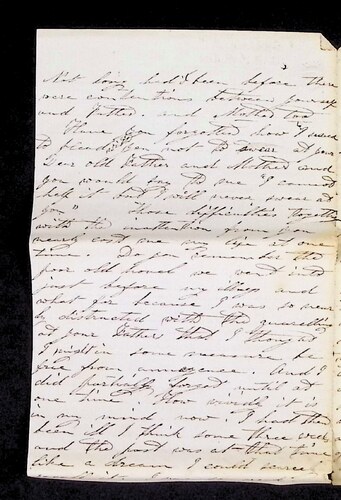 Not long had it been before there
were contentions between yourself
and Father. and Mother too
Have you forgotten how I used
to plead you not to swear at your
dear old Father and Mother and
you would say to me "I cannot
help it but I will never swear at
you" Those difficulties together
with the inattention from you
nearly cost me my life at one
time. Do you remember the
poor old house we went into
just before my illness and
what for because I was so near
ly distracted with the quarelling
of your Father that I thought
I might in some measure be
free from annoyance. And I
did partially forget until at
one time How much it is
in my mind now I had then
been ill I think some three weeks
and the past was at that time
like a dream I could scarce